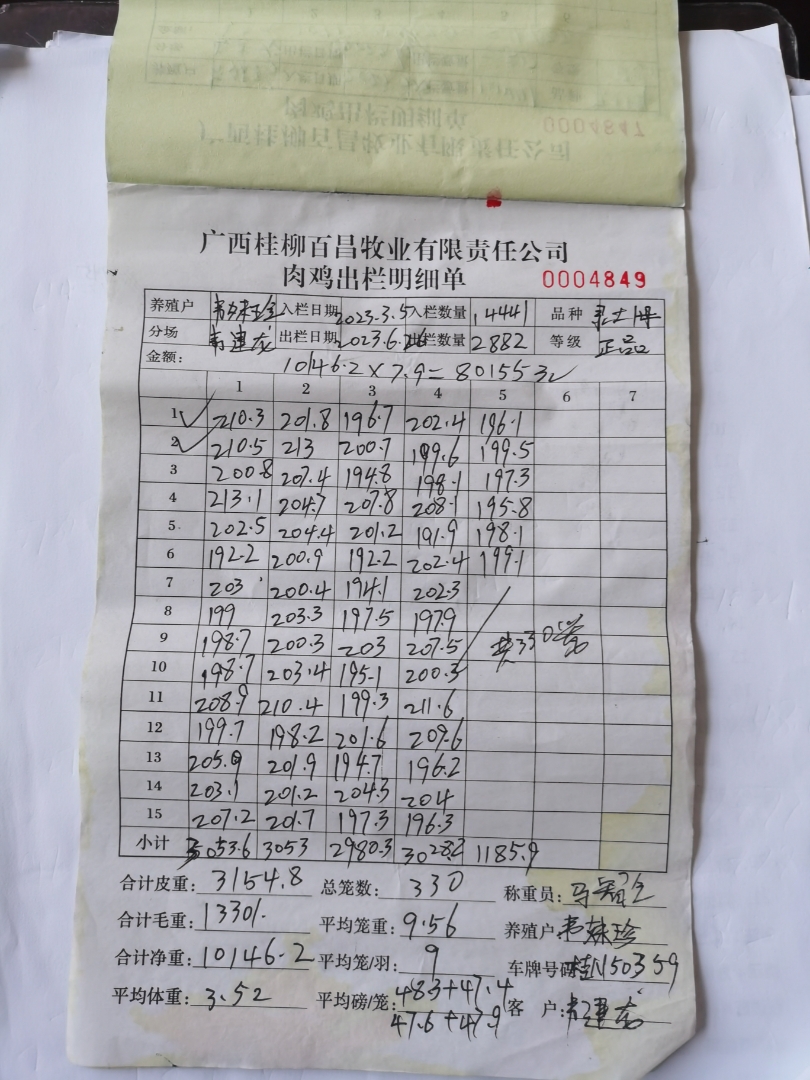 0004847
广西桂柳百昌牧业有限责任公司
肉鸡出栏明细单 0004849
养殖户 入栏日期 2023.3.5 入栏数量 14441 品种
分场 韦建龙 出栏日期 2023.6.26 出栏数量 2882 等级 正品
金额: 10146.2×7.9=80155元
1 2 3 4 5 6 7
1 210.3 201.8 196.7 202.4 196.1
2 210.5 213 200.7 199.6 199.5
3 200.8 207.4 194.8 198.1 197.3
4 213.1 204.7 207.8 208.1 195.8
5 202.5 204.4 201.2 191.9 198.1
6 192.2 200.9 192.2 202.4 199.1
7 203 200.4 194.1 202.3
8 199 203.3 197.5 197.9
9 198.7 200.3 203 207.5 共330笼
10 198.7 203.4 195.1 200.3
11 208.9 210.4 199.3 211.6
12 199.7 198.2 201.6 209.6
13 205.9 201.9 194.7 196.2
14 203.1 201.2 204.3 204
15 207.2 201.7 197.3 196.3
小计 3053.6 3053 2980.3 3028.2 1185.9
合计皮重: 3154.8 总笼数: 330 称重员:
合计毛重: 13301. 平均笼重: 9.56 养殖户:
合计净重: 10146.2 平均笼/羽: 9 车牌号码: 桂N50359
平均体重: 3.52 平均磅/笼: 48.3+47.4 客 户: 韦建龙
47.6+47.9